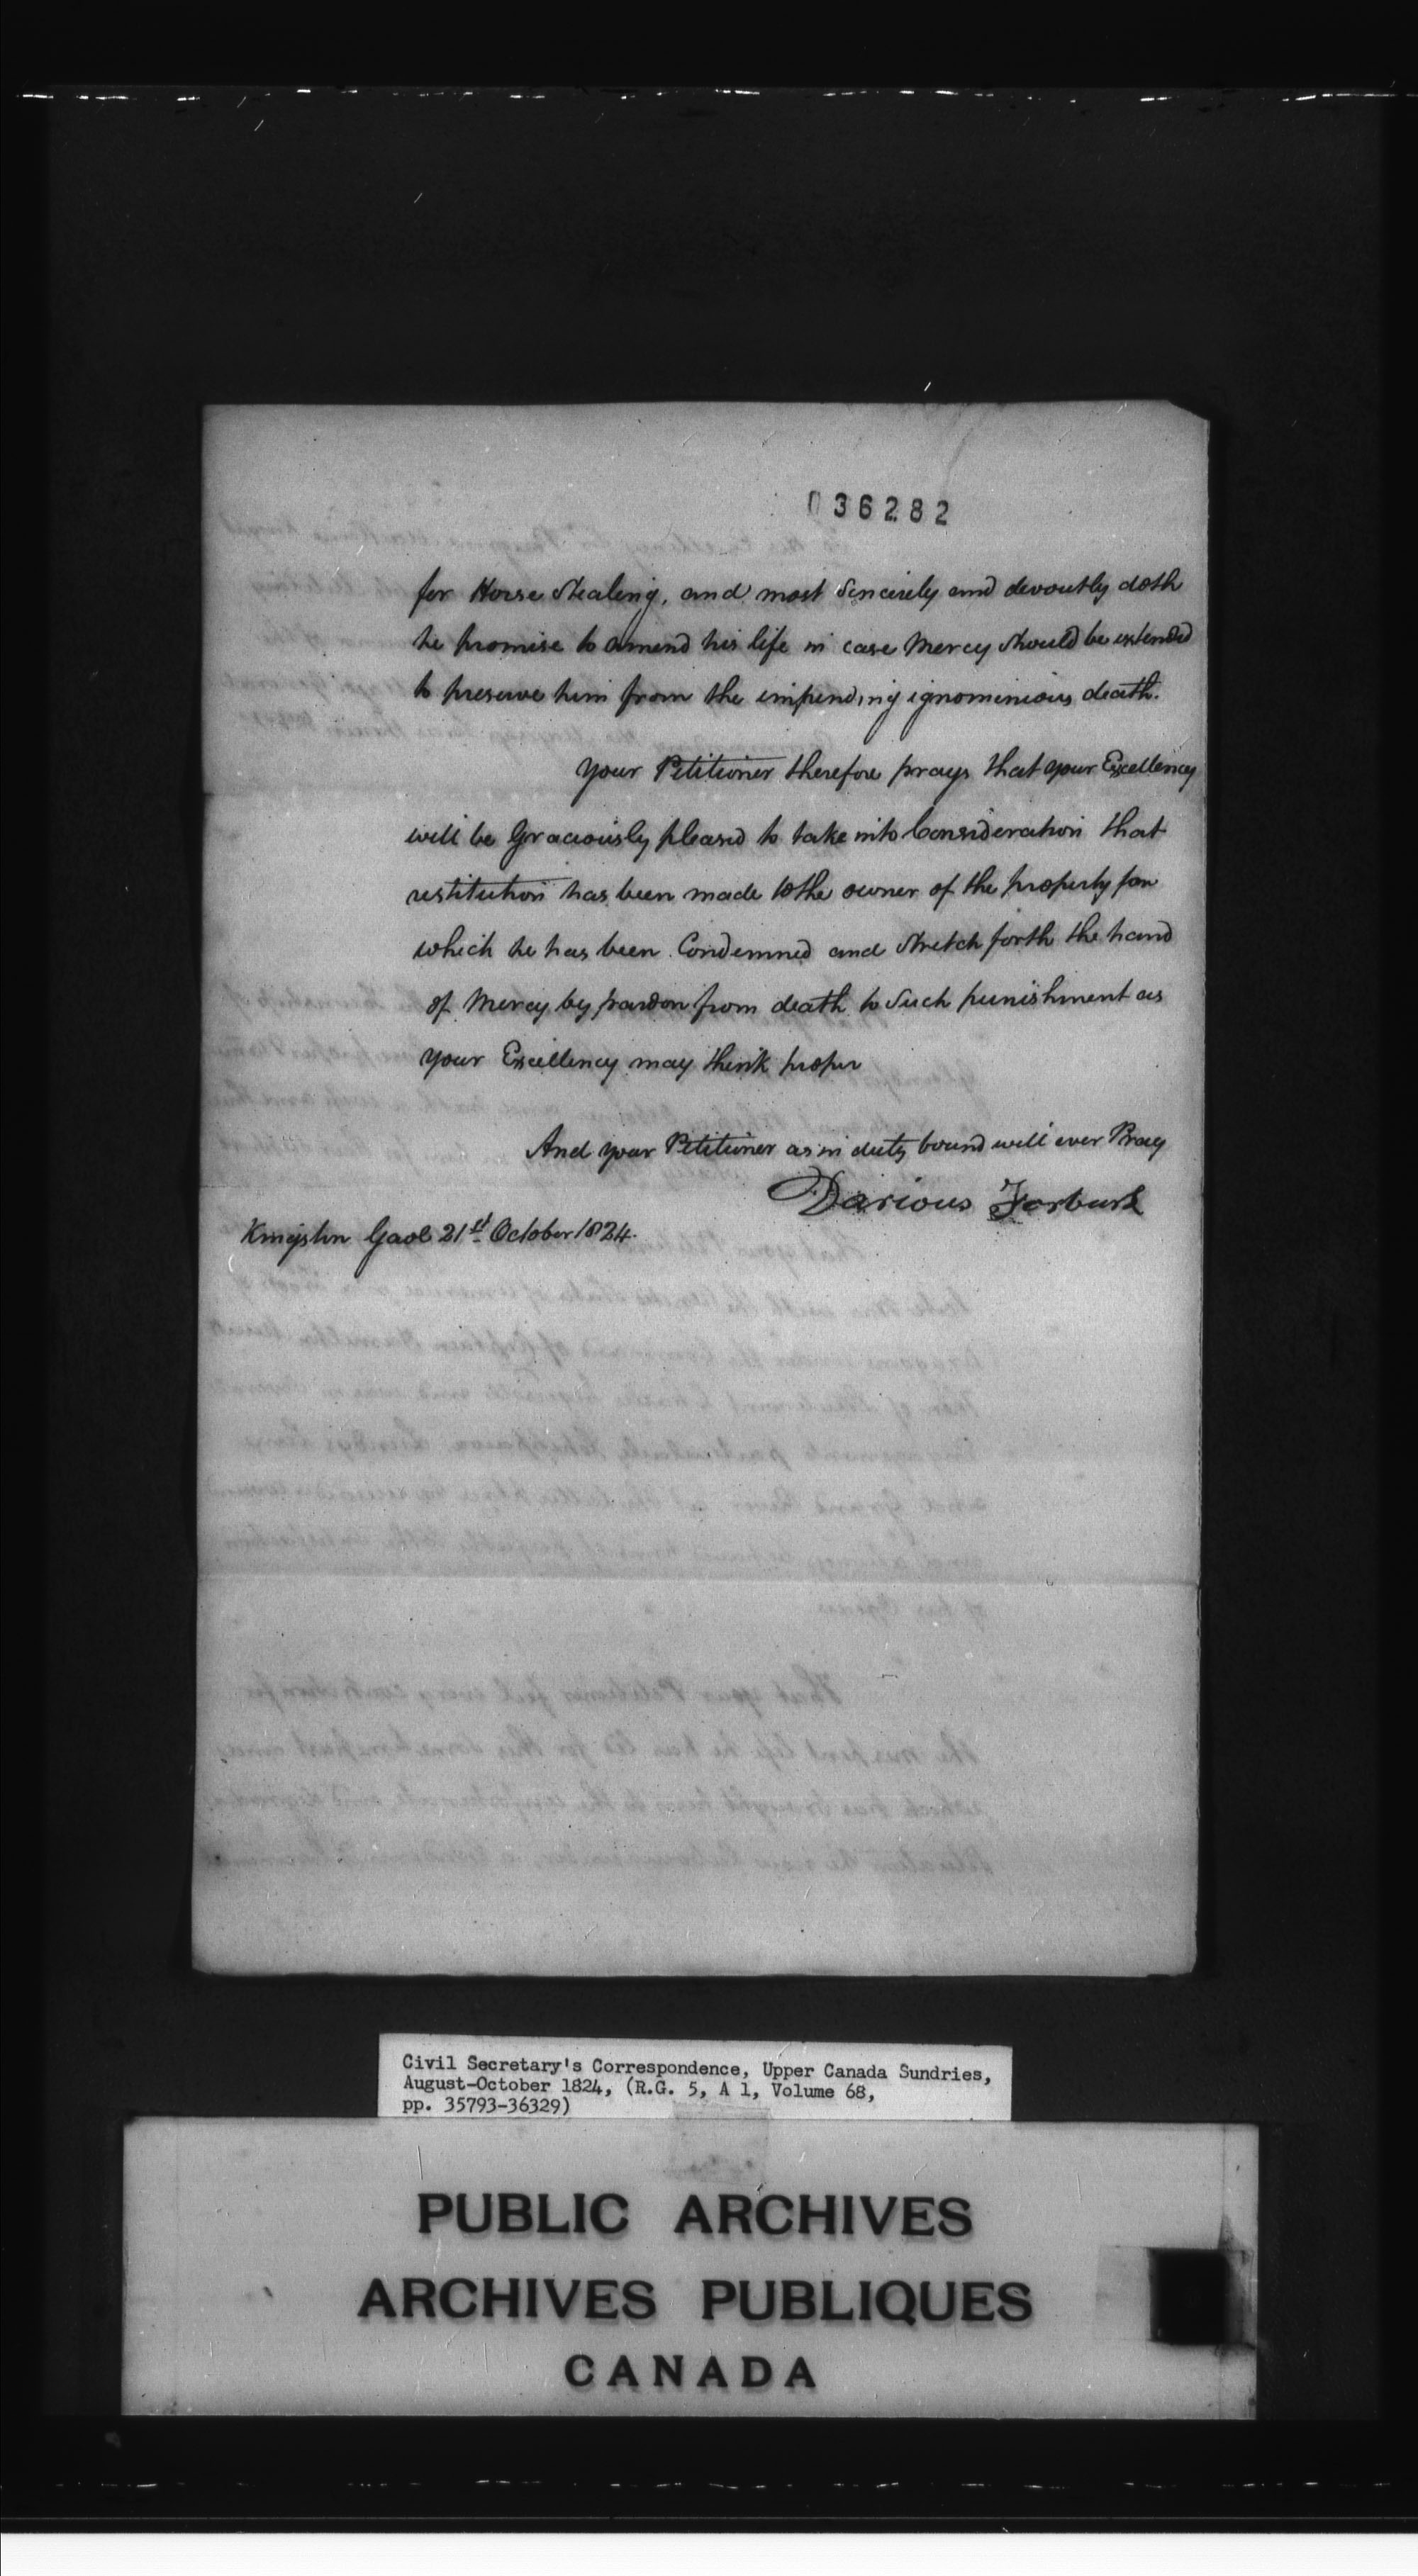 036282
for Horse Stealing, and most Sincerely and devoutly doth
he promise to amend his life in case Mercy Should be extended
to preserve him from the impending ignominious death.
Your Petitioner therefore prays that your Excellency
will be Graciously pleased to take into Consideration that
restitution has been made to the owner of the property for
which he has been Condemned and Stretch forth the hand
of Mercy by pardon from death to Such punishment as
your Excellency may think proper
And your Petitioner as in duty bound will ever Pray
Darious Forbush
Kingston Gaol 21st October 1824.
Civil Secretary's Correspondence, Upper Canada Sundries,
August-October 1824, (R.G. 5, A 1, Volume 68,
pp. 35793-36329)
PUBLIC ARCHIVES
ARCHIVES PUBLIQUES
CANADA